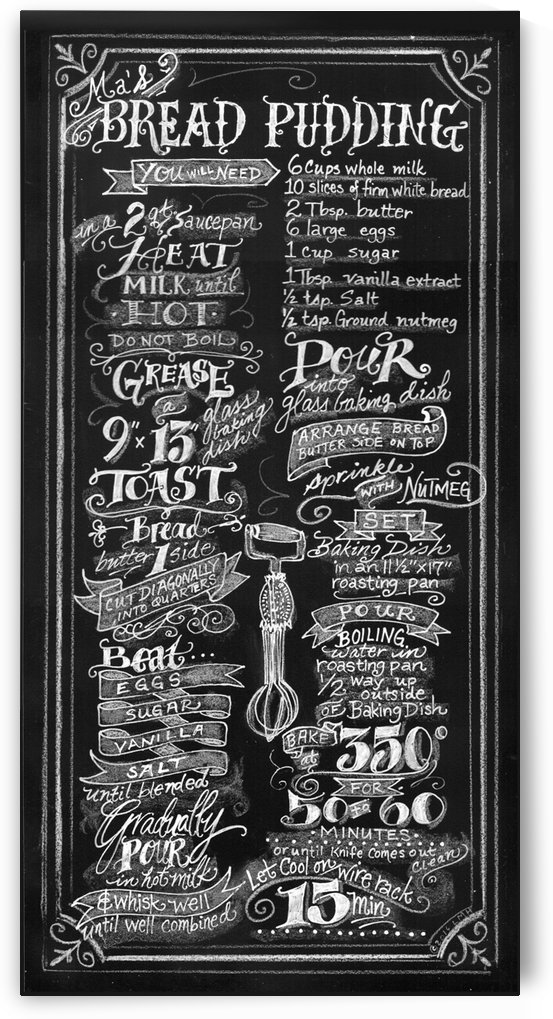 Ma's
BREAD PUDDING
YOU WILL NEED
6 cups whole milk
10 slices of firm white bread
2 Tbsp. butter
6 large eggs
1 cup sugar
1 Tbsp. vanilla extract
½ tsp. Salt
½ tsp. Ground nutmeg
in a 2 qt. Saucepan
HEAT
MILK until
·HOT·
DO NOT BOIL
GREASE
a
9"x 13" glass baking dish
TOAST
Bread
butter 1 side
CUT DIAGONALLY
INTO QUARTERS
Beat...
EGGS
SUGAR
VANILLA
SALT
until blended
Gradually
POUR
in hot milk
& whisk well
until well combined
POUR
into
glass baking dish
ARRANGE BREAD
BUTTER SIDE ON TOP
sprinkle
WITH NUTMEG
SET
Baking Dish
in an 11½"x17"
roasting pan
POUR
BOILING
water in
roasting pan
½ way up
outside
OF Baking Dish
BAKE at 350°
FOR
50 to 60
·MINUTES·
or until Knife comes out clean
Let Cool on wire rack
15 min.